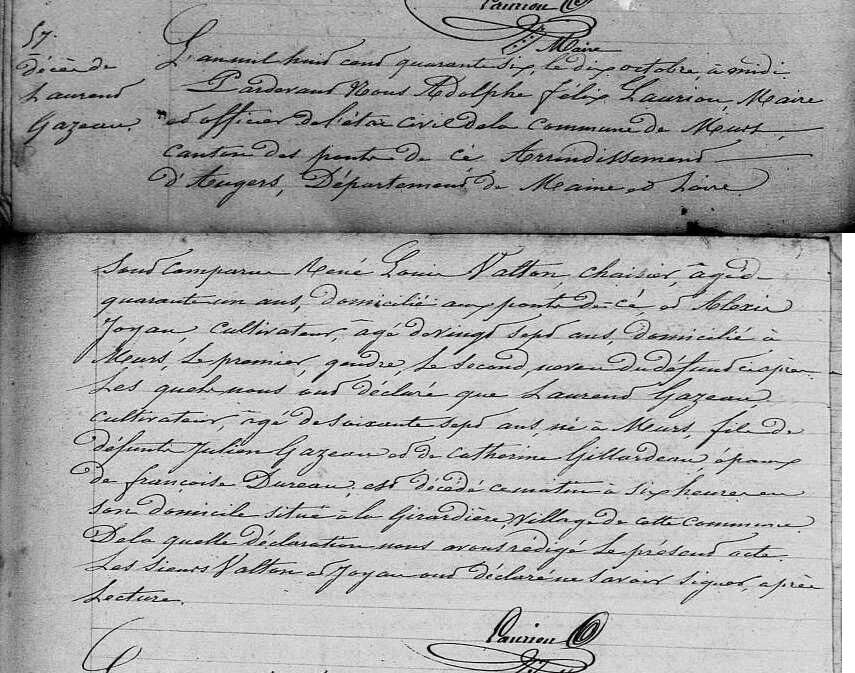 Lauriou
Maire
57.
décès de
Laurend
Gazeau.
L'an mil huid cend quarante six, le dix octobre, à midi
Pardevand Nous Adolphe félix Lauriou, Maire
ed officier de l'étad civil de la commune de Meurs,
canton des ponts de cé Arrondissemend
d'Angers, Départemend de Maine ed Loire
Sond Comparus René Louis Valton, chaisier, âgé de
quarante un ans, domicilié aux ponts-de-cé, ed Alexis
Joyau, cultivateur, âgé de vingd sepd ans, domicilié à
Meurs, Le premier, gendre, Le Second, neveu du défund ci après
Les quels nous ond déclaré que Laurend Gazeau,
cultivateur, âgé de soixante sepd ans, né à Meurs, fils de
défunts Julien Gazeau ed de Catherine Gillardeau, époux
de françoise Dureau, est décédé ce matin à six heures en
son domicile situé à la Girardière Village de cette commune.
De la quelle déclaration nous avons rédigé Le présend acte.
Les Sieurs Valton ed Joyau ond déclaré ne savoir signer, après
Lecture.
Lauriou